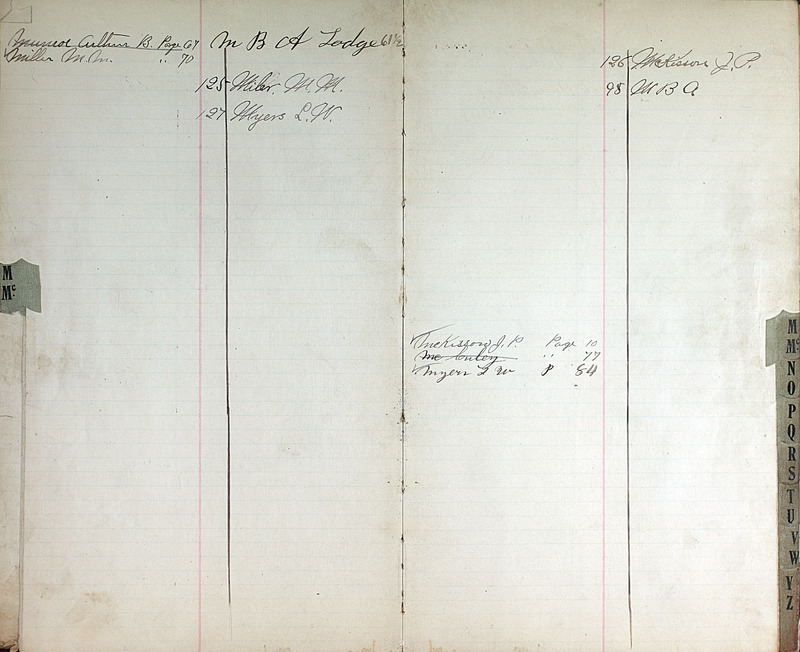 Arthur B. Page 67
Miller M.M. " 70
M B A Lodge 61 1/2
125 Miler M. M.
127 Myers L. W.
M
Mc
126 McKisson J. P.
98 M B A
McKisson J. P. Page 10
Mc " 77
Myers L W P 84
M
Mc
N
O
P
Q
R
S
T
U
V
W
Y
Z